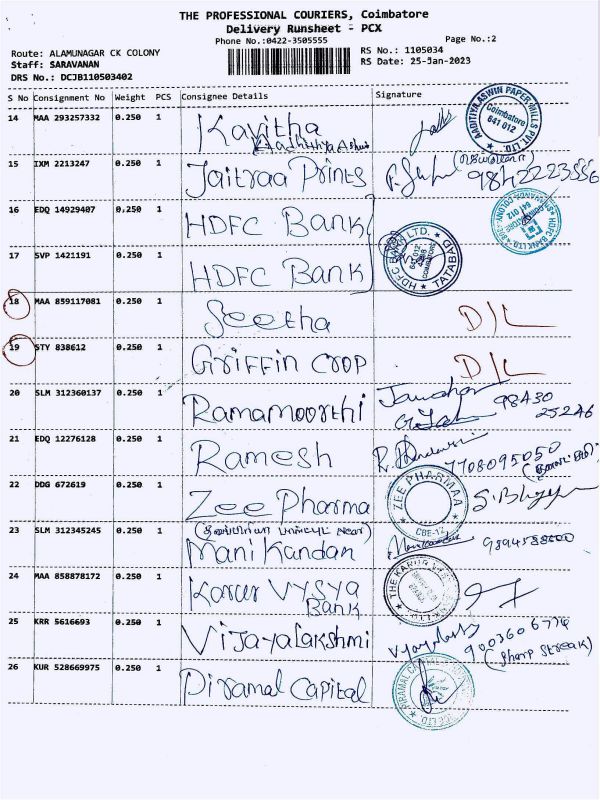 THE PROFESSIONAL COURIERS, Coimbatore
Delivery Runsheet - PCX
Phone No.:0422-3505555
Page No.:2
Route: ALAMUNAGAR CK COLONY
Staff: SARAVANAN
DRS No.: DCJB110503402
RS No.: 1105034
RS Date: 25-Jan-2023
S No Consignment No Weight PCS Consignee Details Signature
14 MAA 293257332 0.250 1 Kavitha
AADITIYA ASWIN PAPER MILLS PVT. LTD. Coimbatore 641 012
15 IXM 2213247 0.250 1 Jaitraa Prints 9842223556
16 EDQ 14929407 0.250 1 HDFC Bank
17 SVP 1421191 0.250 1 HDFC Bank
HDFC BANK LTD. TATABAD
18 MAA 859117081 0.250 1 Seetha D/L
19 STY 838612 0.250 1 Griffin crop D/L
20 SLM 312360137 0.250 1 Ramamoorthi 98430
25246
21 EDQ 12276128 0.250 1 Ramesh 7708095050
22 DDG 672619 0.250 1 Zee Pharma
ZEE PHARMAA CBE-12
23 SLM 312345245 0.250 1 Mani Kandan
24 MAA 858878172 0.250 1 Karur VYSYA
Bank
25 KRR 5616693 0.250 1 Vijayalakshmi
(Sharp Streak)
26 KUR 528669975 0.250 1 Piramal Capital